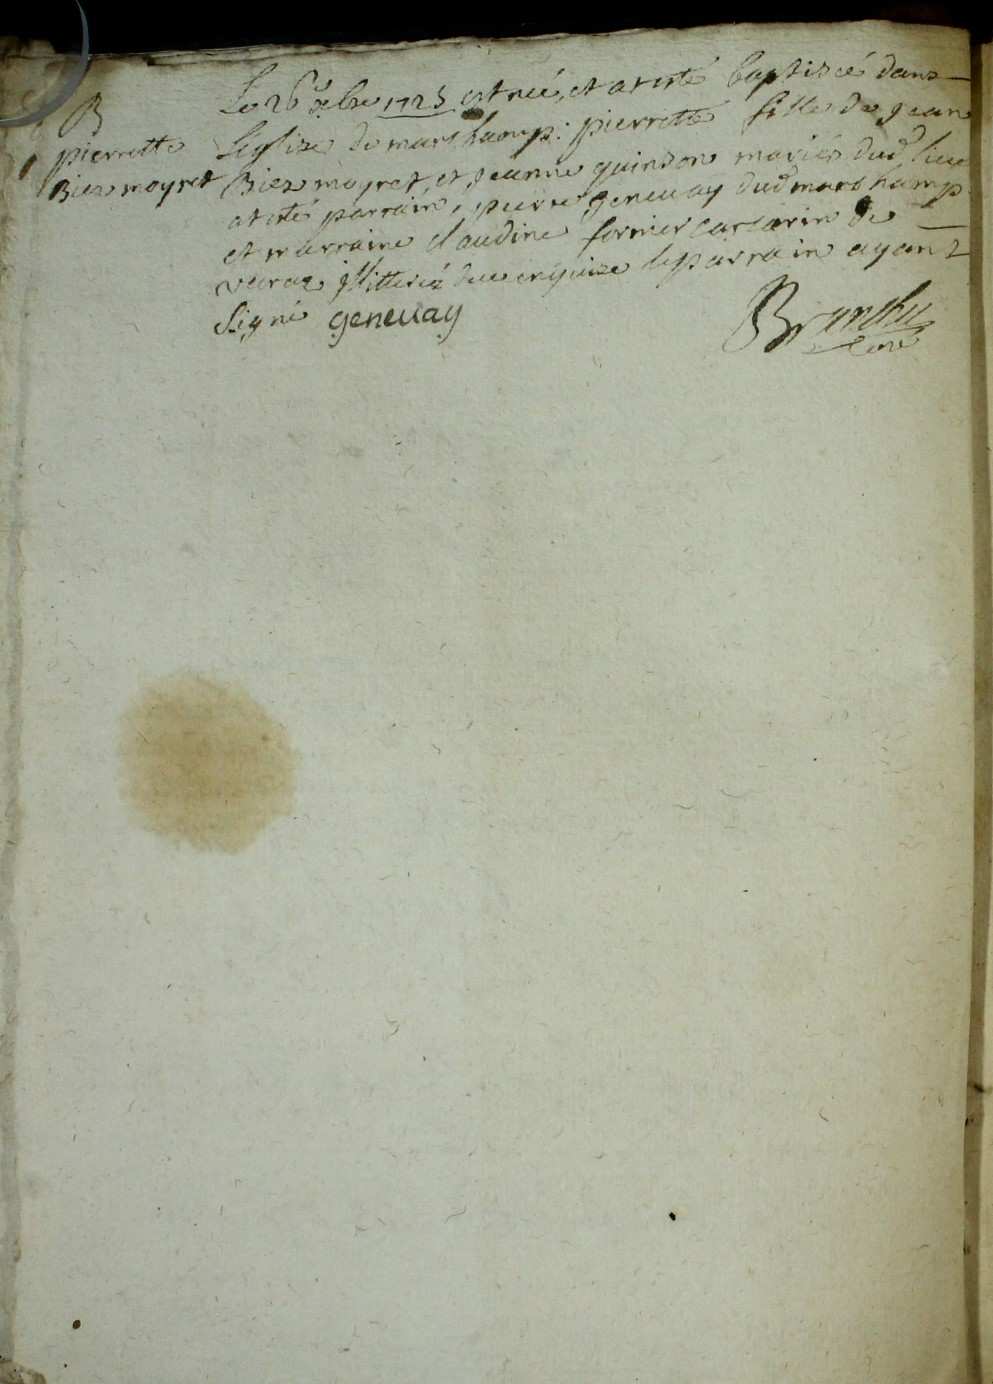 B
pierrette
Biez moyret
Le 26e xbre 1725 est née, et a esté baptisée dans
Leglize de marchamp: pierrette fille de jean
Biez moyret, et jeanne guindon mariés dud lieu
a esté parrain, pierre genevay dud marchamp
et marraine claudine fornier
illitteréz de enquize le parrain ayant
signé genevay
curé